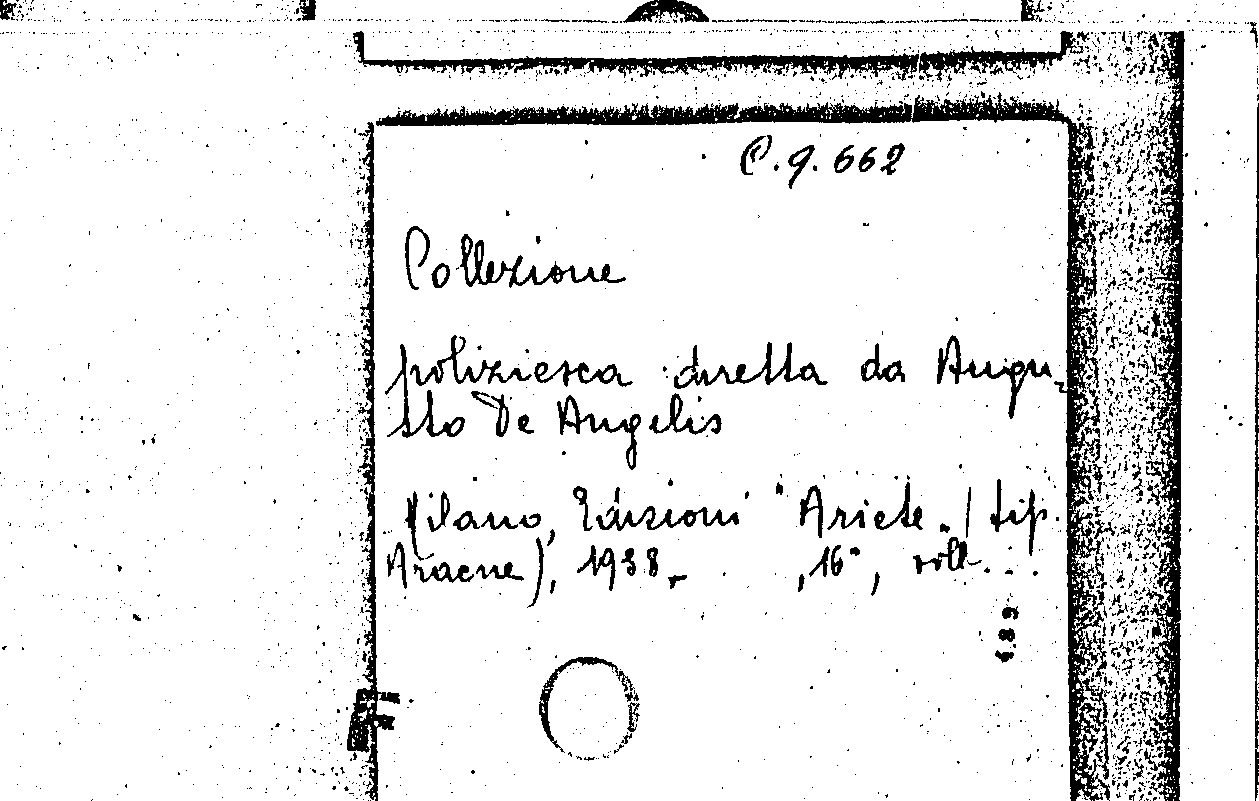 C.9.662
Collezione
poliziesca diretta da Augu-
sto De Angelis
Milano, Edizioni "Ariete" (tip.
Aracne), 1938-      , 16°, voll. ...